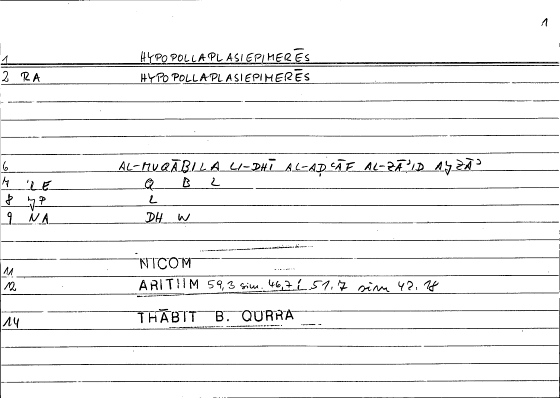 1
1 HYPOPOLLAPLASIEPIMERĒS
2 RA HYPOPOLLAPLASIEPIMERĒS
6 AL-MUQĀBILA LI-DHĪ AL-AḌʿĀF AL-ZĀʾID AJZĀʾ
LE Q B L
8 L
9 NA DH W
11 NICOM
12 ARITIIM 59,3 sim. 46,7 51.7 sim 42.18
14 THĀBIT B. QURRA